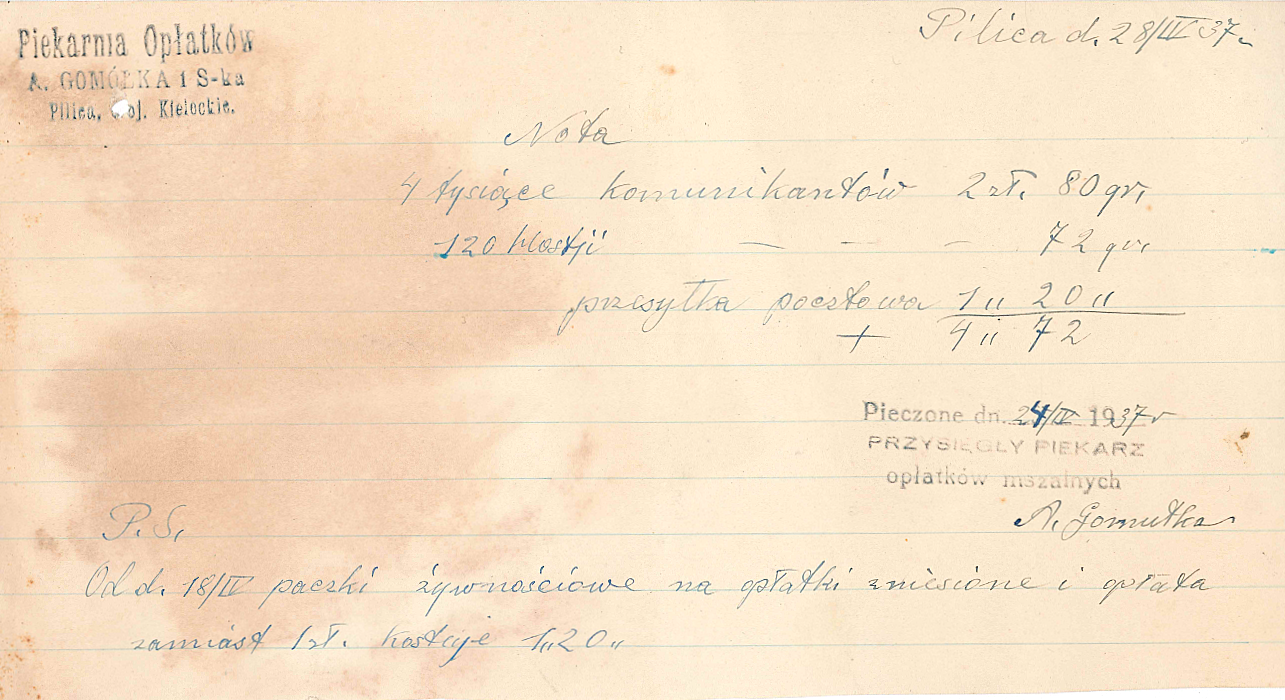 Piekarnia Opłatków
A. GOMÓŁKA i S-ka
Pilica, Woj. Kieleckie.
Pilica d. 28/IV 37 r.
Nota
4 tysiące komunikantów 2 zł. 80 gr.
120 Hostji — — — 72 gr.
przesyłka pocztowa 1 „ 20 „
+ 4 „ 72
Pieczone dn. 24/IV 1937 r
PRZYSIĘGŁY PIEKARZ
opłatków mszalnych
A. Gomułka
P. S.
Od d. 18/IV paczki żywnościowe na opłatki zniesione i opłata
zamiast 1 zł. kostuje 1 „ 20 „